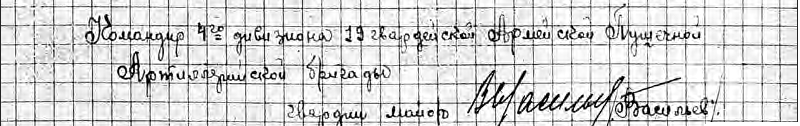 Командир 4го дивизиона 19 гвардейской Армейской Пушечной
Артиллерийской бригады
гвардии майор Васильев /Васильев/